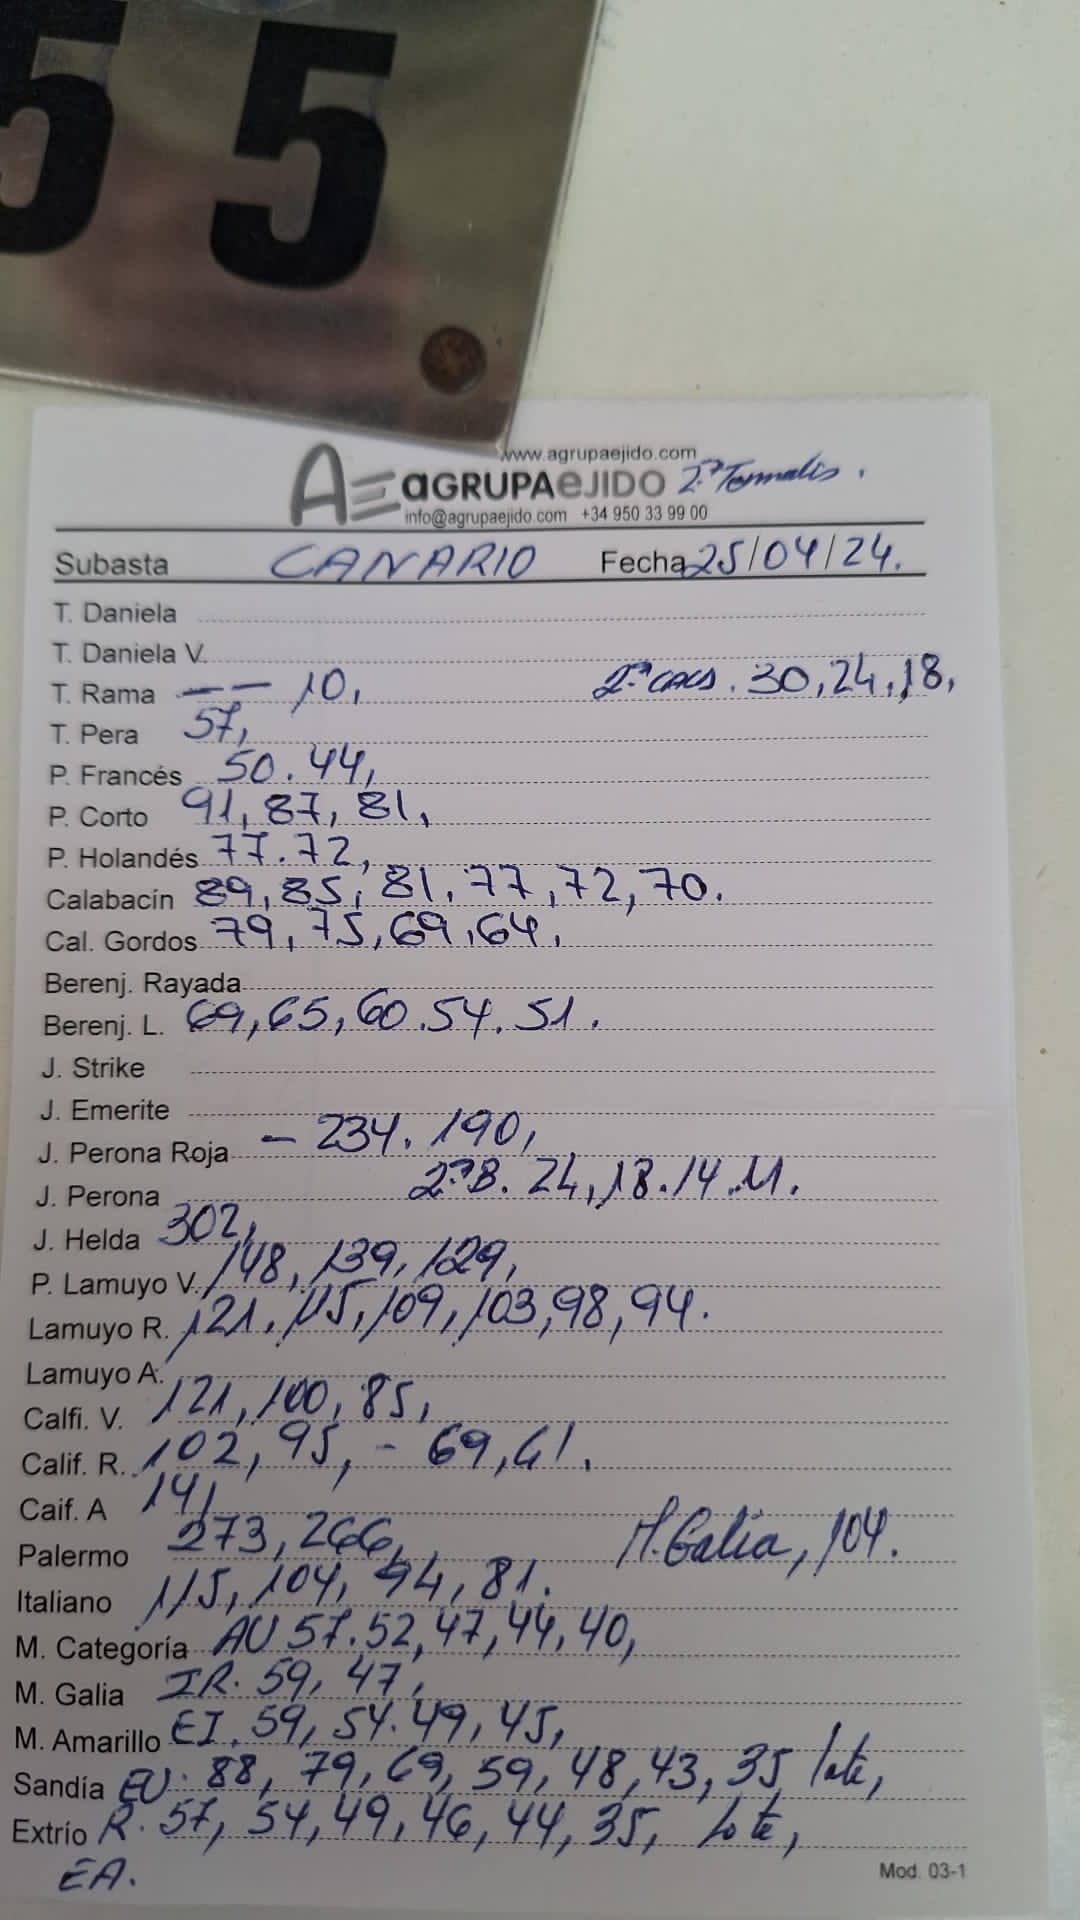 55
www.agrupaejido.com
AGRUPAEJIDO 2.ª Tomatis.
info@agrupaejido.com +34 950 33 99 00
Subasta CANARIO Fecha 25/04/24.
T. Daniela
T. Daniela V.
T. Rama — — 10, 2ª CACS. 30, 24, 18,
T. Pera 57,
P. Francés 50. 44,
P. Corto 91, 87, 81,
P. Holandés 77. 72,
Calabacín 89, 85, 81, 77, 72, 70.
Cal. Gordos 79, 75, 69, 64,
Berenj. Rayada
Berenj. L. 69, 65, 60. 54. 51.
J. Strike
J. Emerite
J. Perona Roja — 234. 190,
J. Perona 2ªB. 24, 18. 14. 11.
J. Helda 302,
P. Lamuyo V. 148, 139, 129,
Lamuyo R. 121, 115, 109, 103, 98, 94.
Lamuyo A.
Calfi. V. 121, 100, 85,
Calif. R. 102, 95, - 69, 61.
Caif. A 141
Palermo 273, 266, M. Galia, 104.
Italiano 115, 104, 94, 81.
M. Categoría AU 57. 52, 47, 44, 40,
M. Galia IR. 59, 47,
M. Amarillo EI. 59, 54. 49, 45,
Sandía EU. 88, 79, 69, 59, 48, 43, 35 lote,
Extrío R. 57, 54, 49, 46, 44, 35, Lote,
EA.
Mod. 03-1